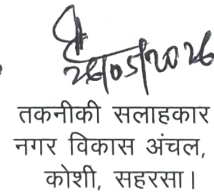 26/05/2026
तकनीकी सलाहकार
नगर विकास अंचल,
कोशी, सहरसा।